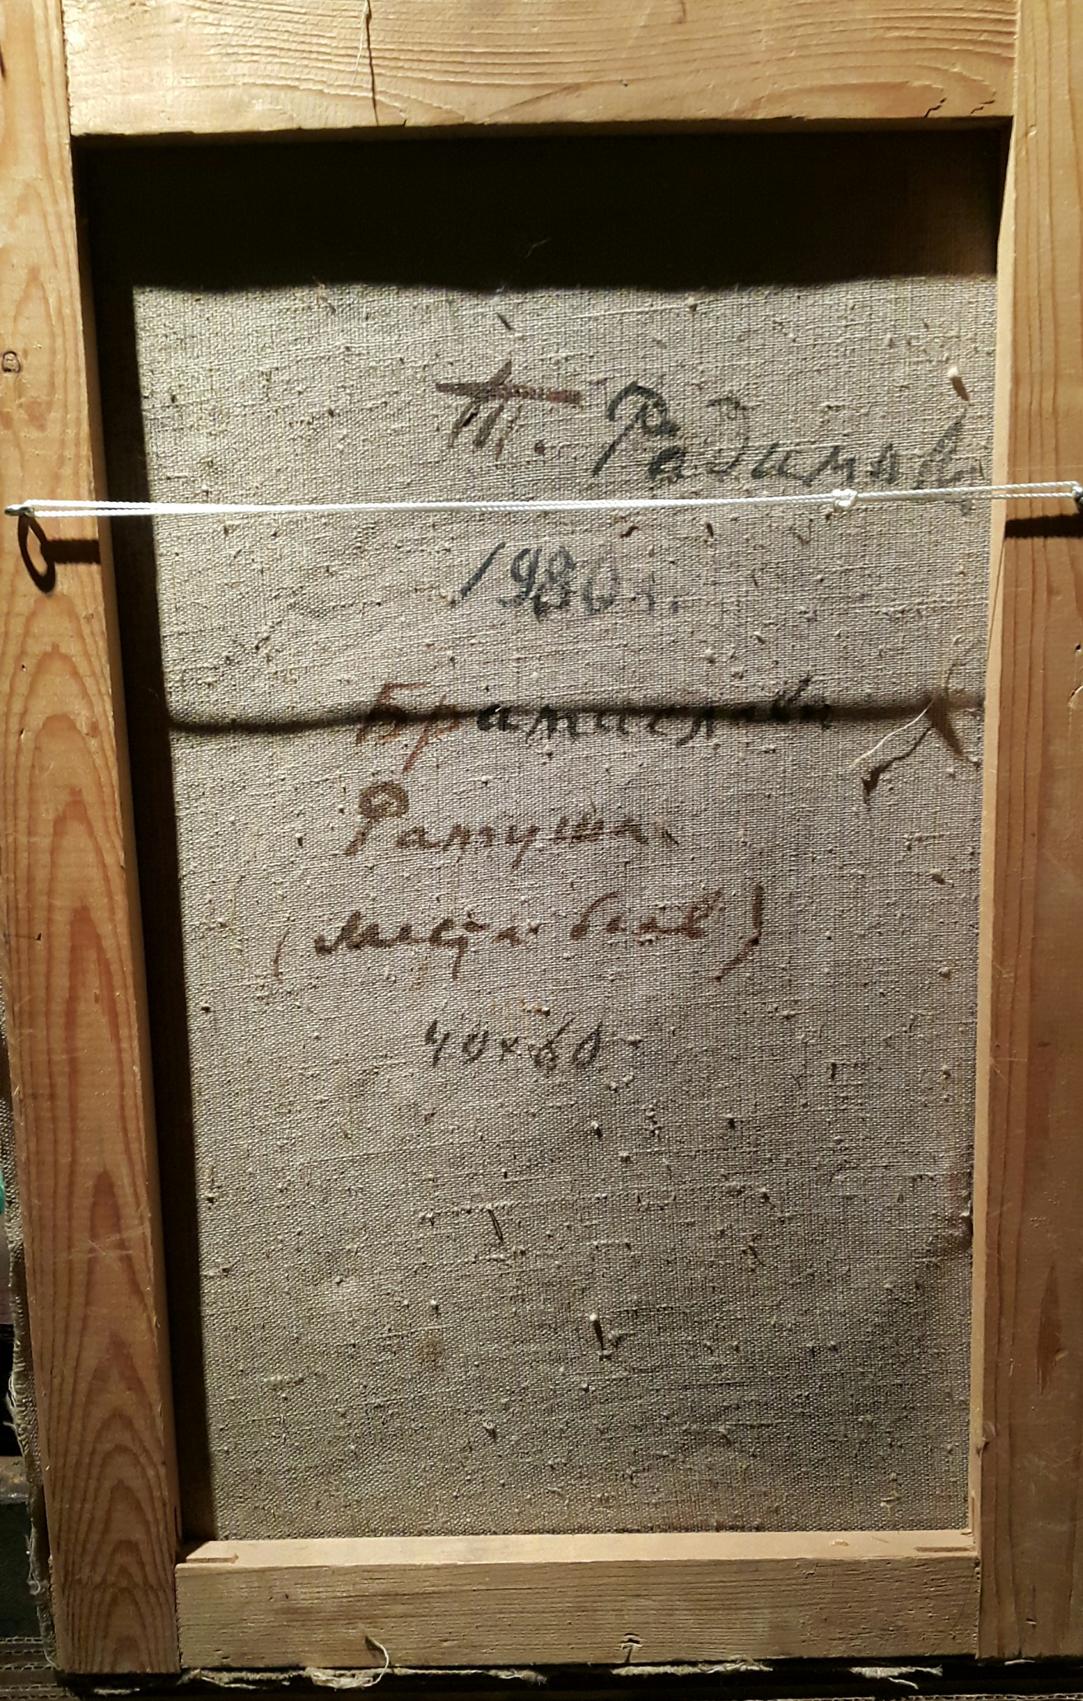 Т. Радимов
1980 г.
Братислава
Ратуша
(места боёв)
40×60